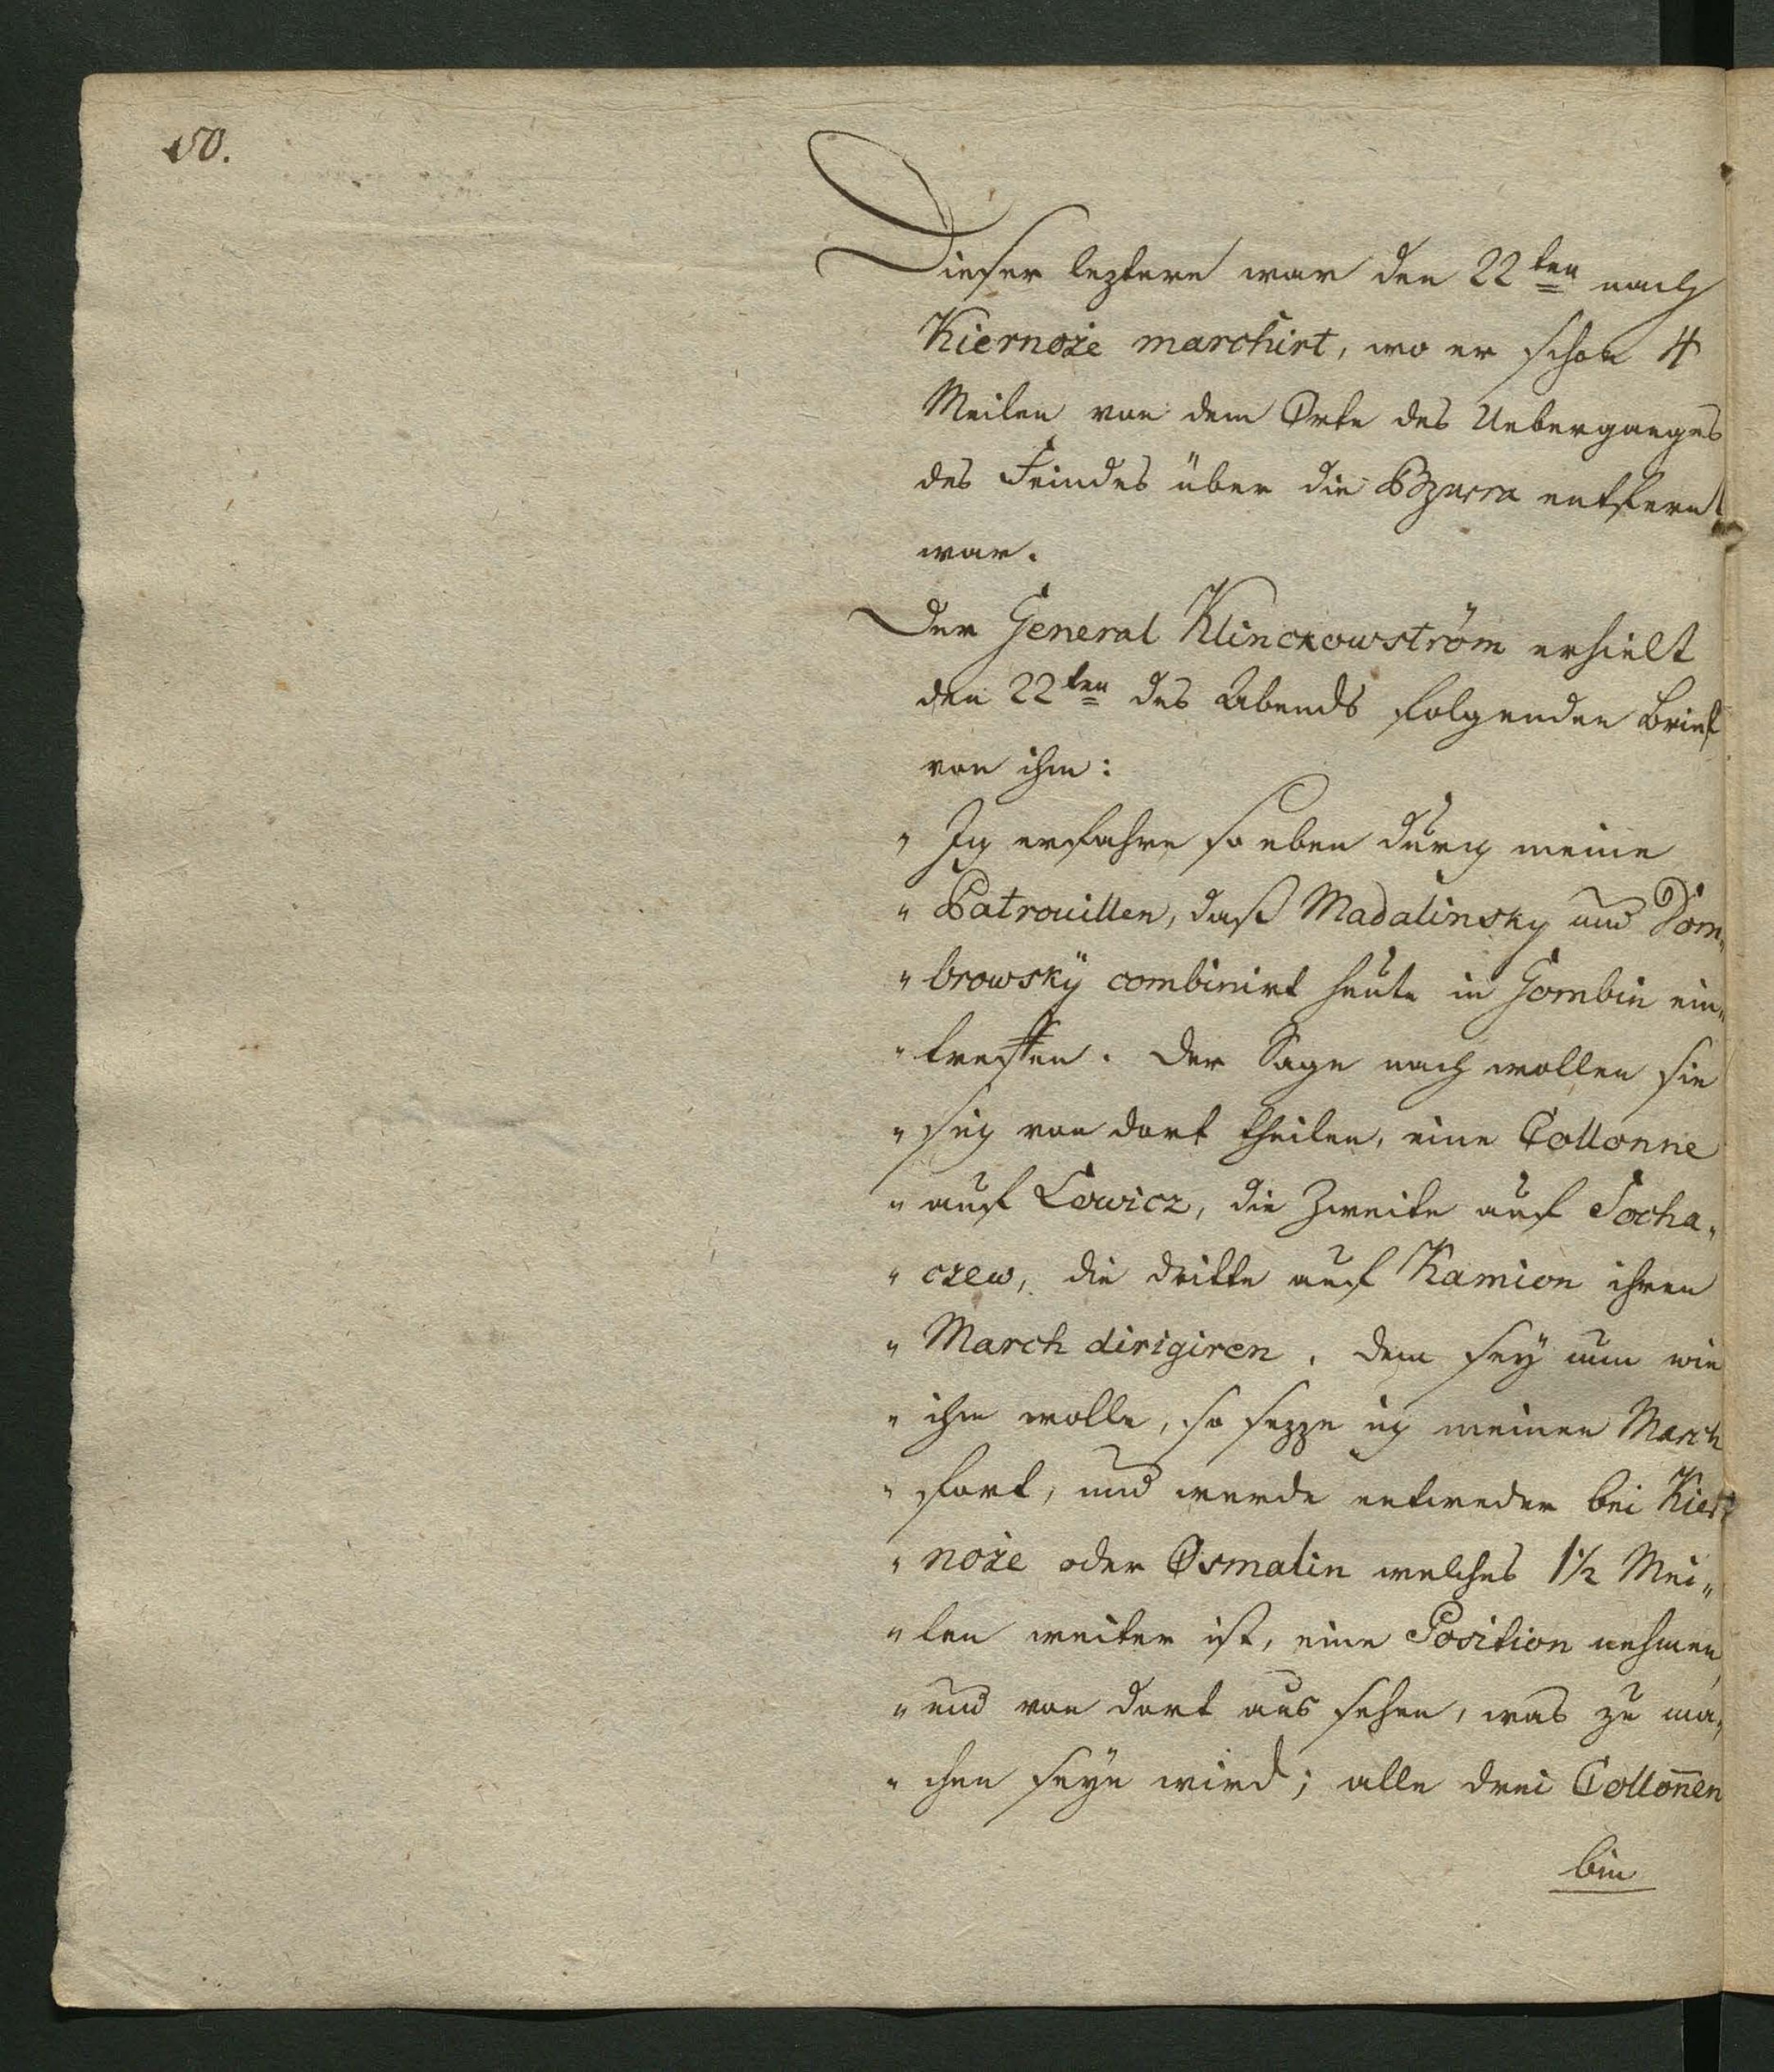 50.
Dieser leztere war den 22ten nach
Kiernoże marchirt, wo er schon 4
Meilen von dem Orte des Ueberganges
des Feindes über die Bzurra entfernt
war.
Der General Klinckowström erhielt
den 22ten des Abends folgenden Brief
von ihm:
„ Ich erfahre so eben durch meine
„ Patrouillen, daß Madalinsky und Dom„
„ browskÿ combinirt heute in Gombin ein„
„ treffen. Der Sage nach wollen sie
„ sich von dort theilen, eine Collonne
„ auf Lowicz, die Zweite auf Socha„
„ czew, die dritte auf Kamion ihren
„ March dirigiren. Dem seÿ nun wie
„ ihm wolle, so sezze ich meinen March
„ fort, und werde entweder bei Kier„
„ noże oder Osmalin welches 1½ Mei„
„ len weiter ist, eine Position nehmen,
„ und von dort aus sehen, was zu ma„
„ chen seÿn wird; alle drei Collon̄en
bin